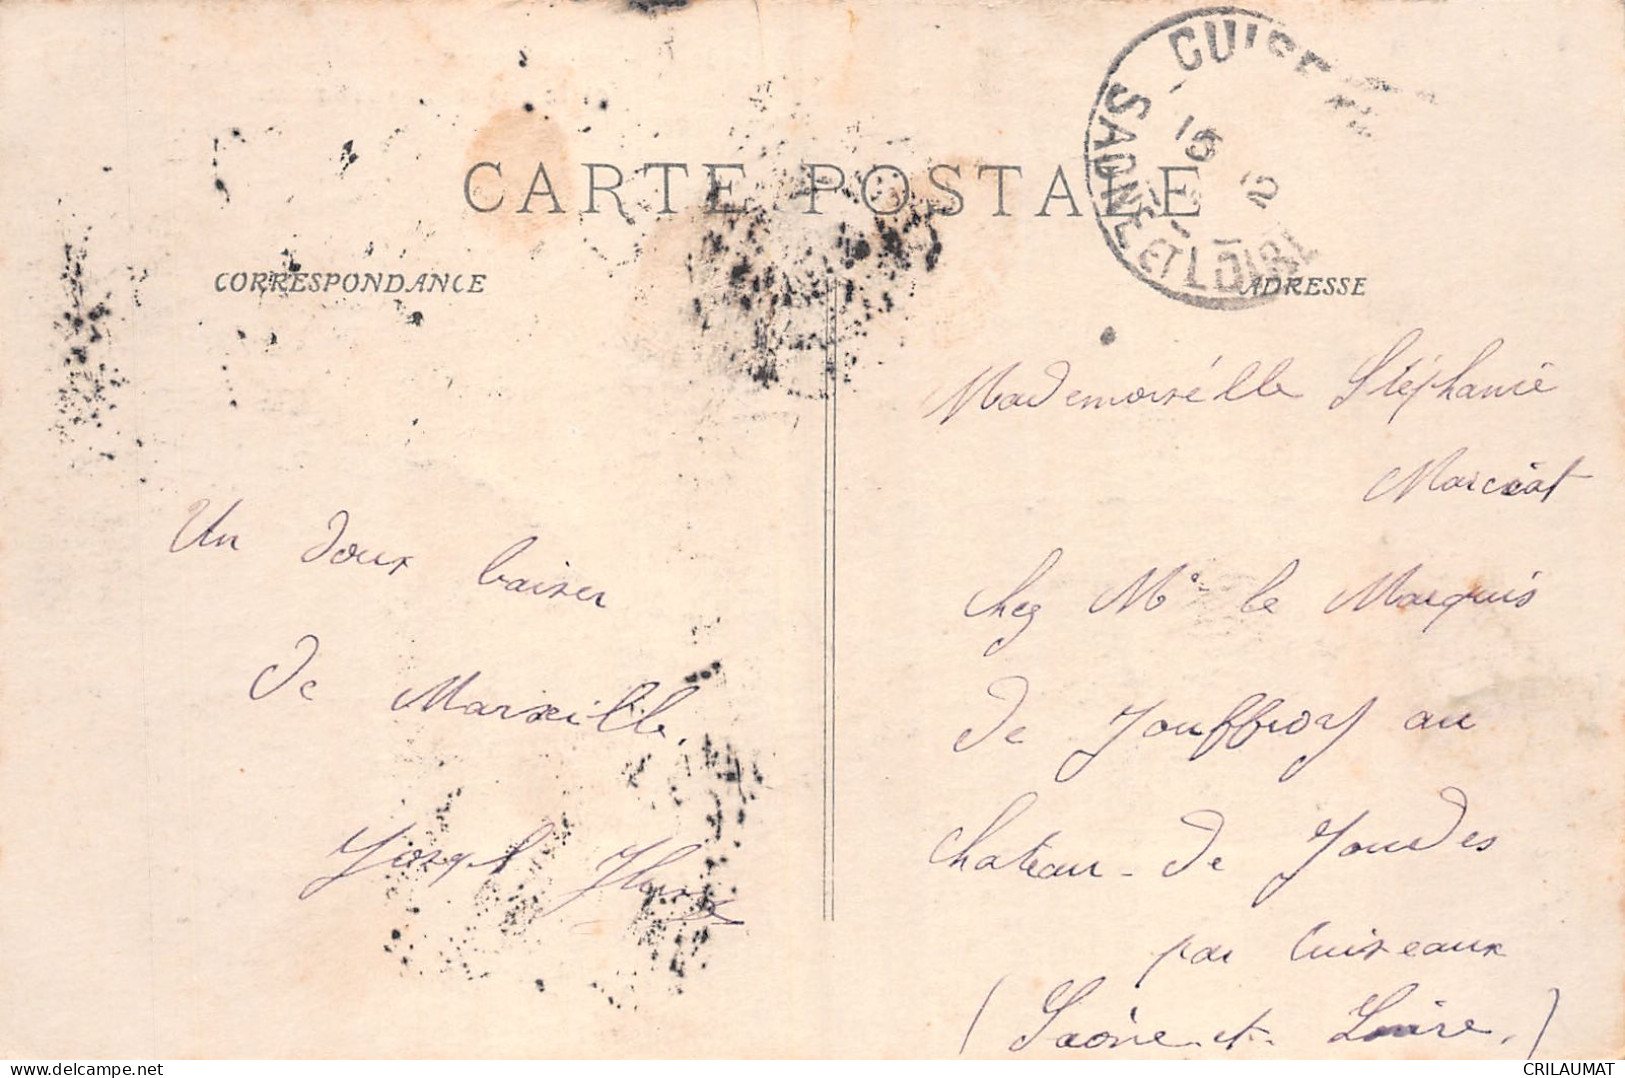 CARTE POSTALE
CORRESPONDANCE
ADRESSE
SAONE ET LOIRE
15
Un doux baiser
de Marseille.
Joseph
Mademoiselle Stéphanie
Marciat
chez Mr le Marquis
de Jouffroy au
chateau de Joudes
par Cuiseaux
(Saône et Loire.)
delcampe.net
CRILAUMAT